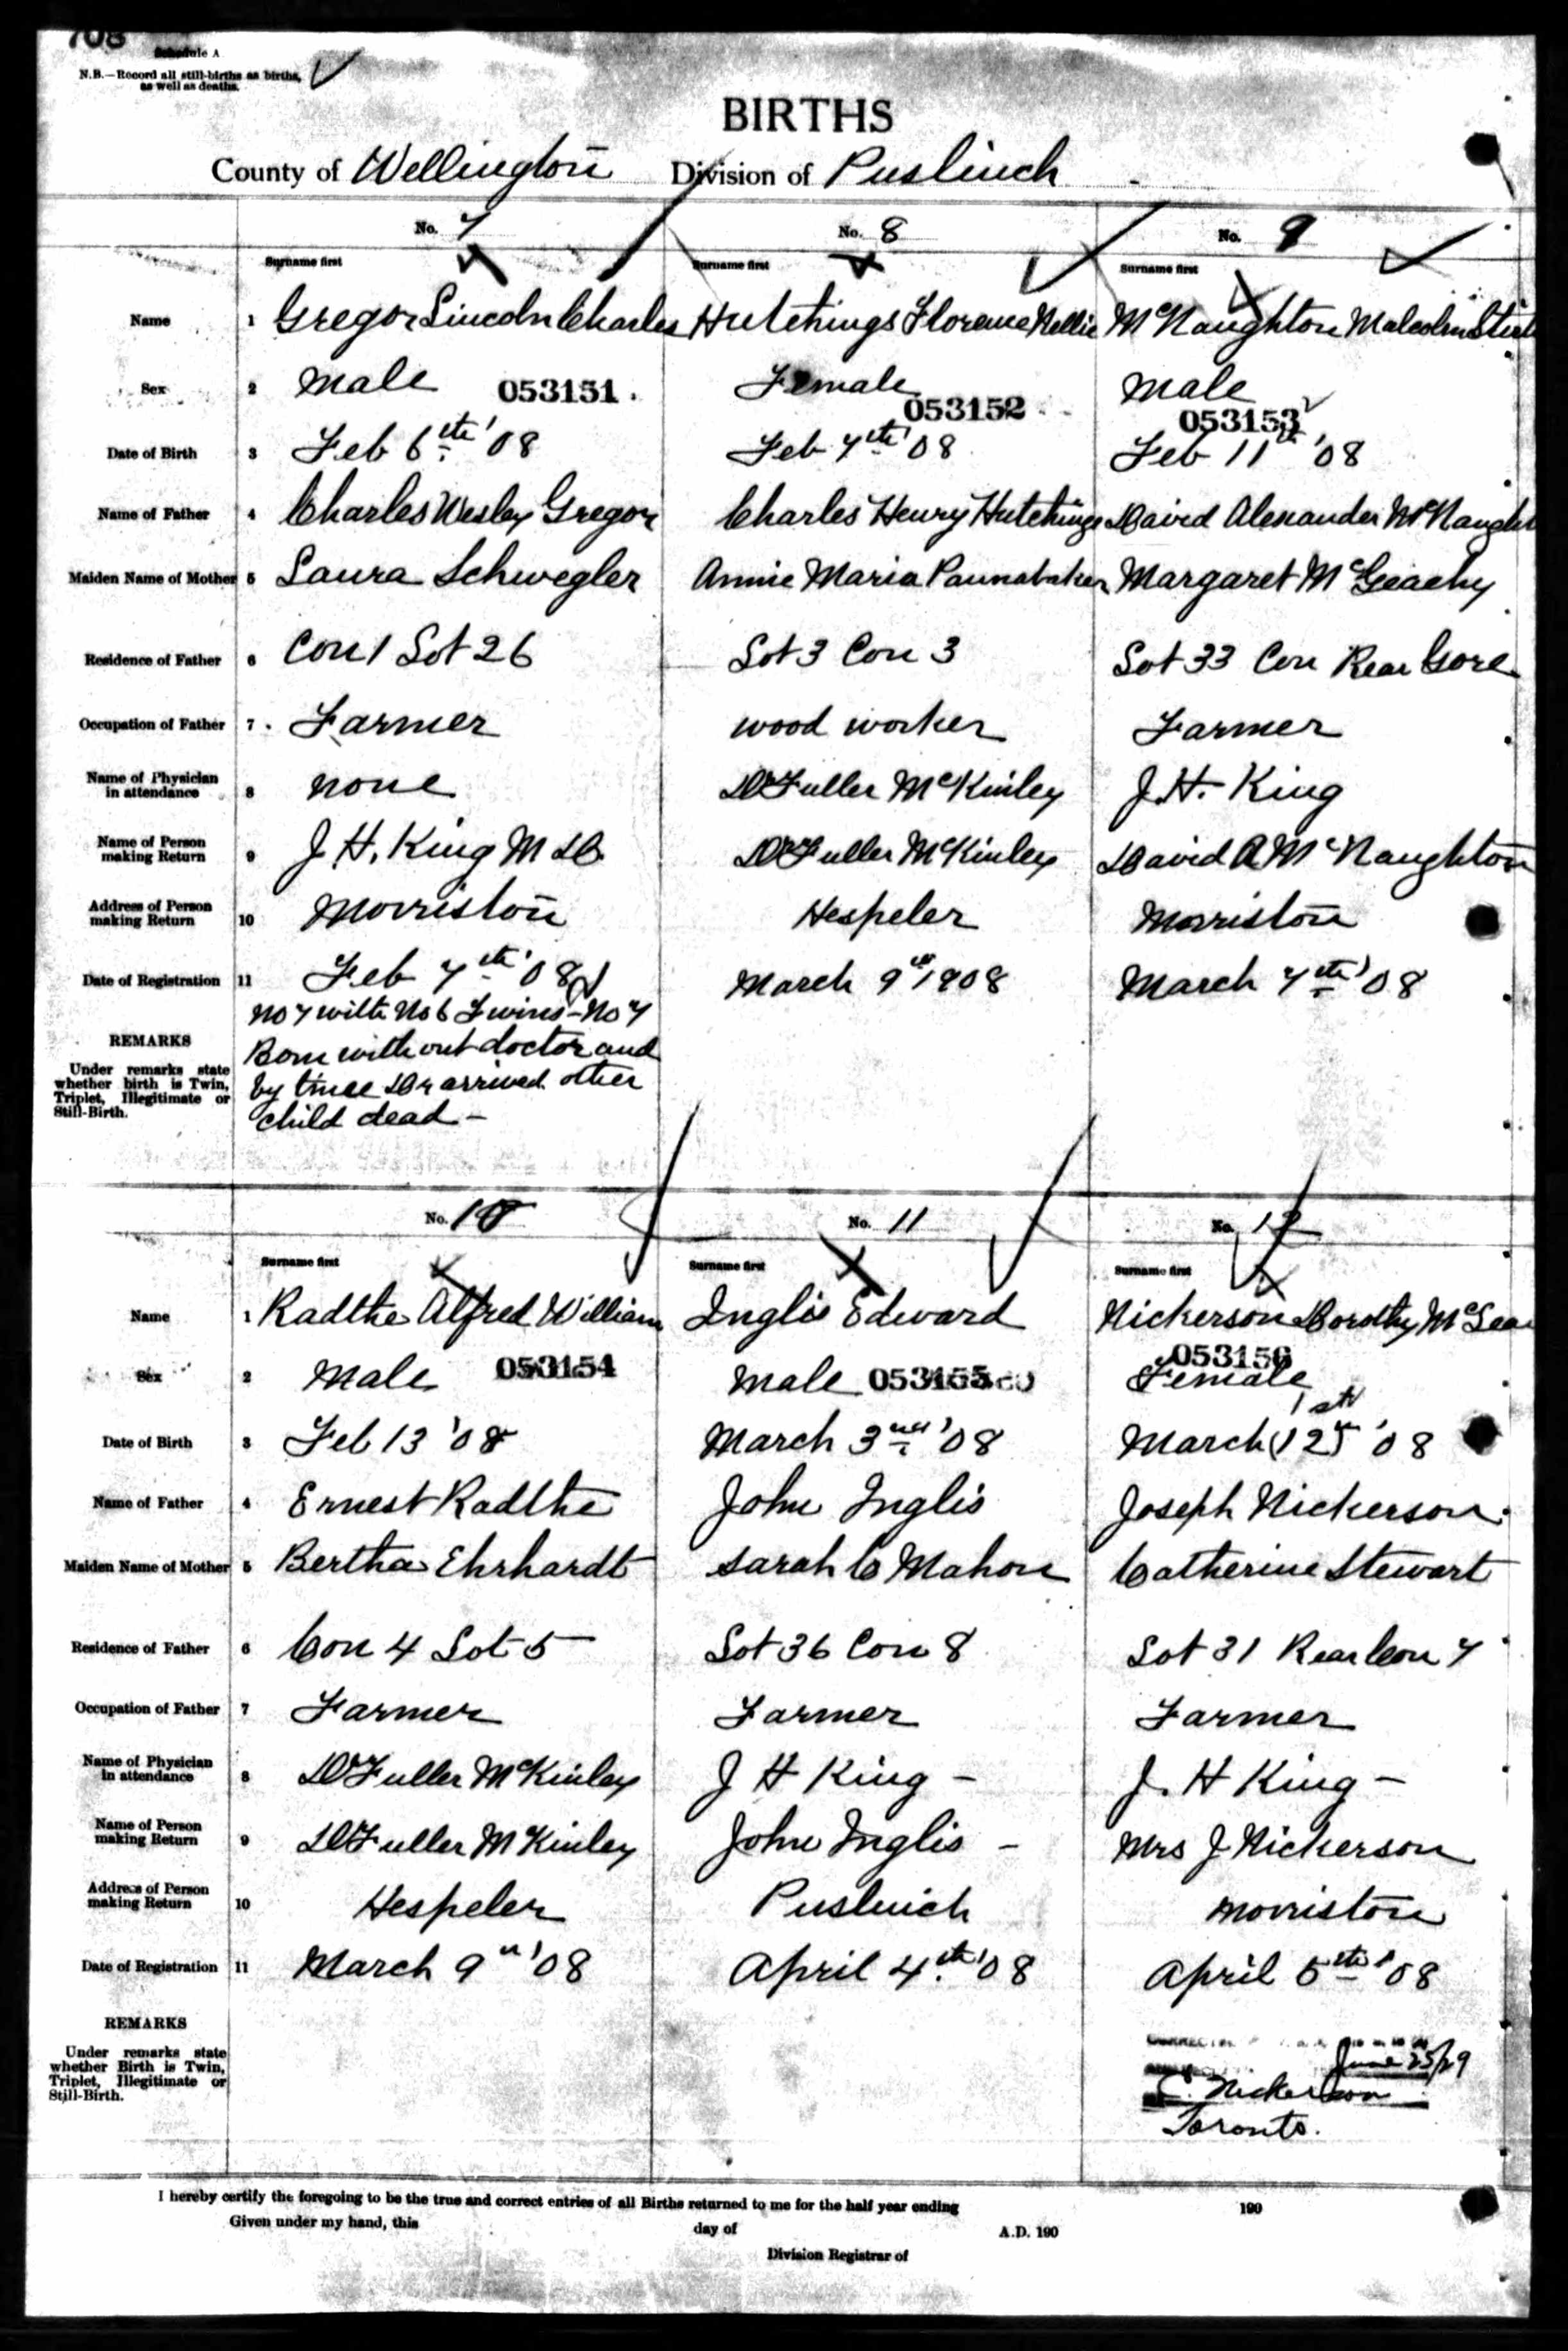 708
Schedule A
N.B.—Record all still-births as births,
as well as deaths.
BIRTHS
County of Wellington Division of Puslinch
No. 7 No. 8 No. 9
Surname first Surname first Surname first
Name 1 Gregor Lincoln Charles Hutchings Florence Nellie McNaughton Malcolm
Sex 2 Male 053151 Female 053152 Male 053153
Date of Birth 3 Feb 6th '08 Feb 7th '08 Feb 11th '08
Name of Father 4 Charles Wesley Gregor Charles Henry Hutchings David Alexander McNaught
Maiden Name of Mother 5 Laura Schwegler Annie Maria Pannabaker Margaret McGeachy
Residence of Father 6 Con 1 Lot 26 Lot 3 Con 3 Lot 33 Con Rear Gore
Occupation of Father 7 Farmer wood worker Farmer
Name of Physician
in attendance 8 none Dr Fuller McKinley J. H. King
Name of Person
making Return 9 J H. King M D. Dr Fuller McKinley David A McNaughton
Address of Person
making Return 10 Morriston Hespeler Morriston
Date of Registration 11 Feb 7th '08 March 9th 1908 March 7th '08
REMARKS
Under remarks state
whether birth is Twin,
Triplet, Illegitimate or
Still-Birth.
No 7 with No 6 Twins - No 7
Born without doctor and
by time Dr arrived other
child dead -
No. 10 No. 11 No. 12
Surname first Surname first Surname first
Name 1 Radtke Alfred William Inglis Edward Nickerson Dorothy McLea
Sex 2 Male 053154 Male 053155 Female 053156
1st
Date of Birth 3 Feb 13 '08 March 3rd '08 March (12th) '08
Name of Father 4 Ernest Radtke John Inglis Joseph Nickerson
Maiden Name of Mother 5 Bertha Ehrhardt Sarah C Mahon Catherine Stewart
Residence of Father 6 Con 4 Lot 5 Lot 36 Con 8 Lot 31 Rear Con 7
Occupation of Father 7 Farmer Farmer Farmer
Name of Physician
in attendance 8 Dr Fuller McKinley J H King - J. H King -
Name of Person
making Return 9 Dr Fuller McKinley John Inglis - Mrs J Nickerson
Address of Person
making Return 10 Hespeler Puslinch Morriston
Date of Registration 11 March 9th '08 April 4th '08 April 5th '08
REMARKS
Under remarks state
whether Birth is Twin,
Triplet, Illegitimate or
Still-Birth.
June 25/29
C. Nickerson
Toronto.
I hereby certify the foregoing to be the true and correct entries of all Births returned to me for the half year ending 190
Given under my hand, this day of A.D. 190
Division Registrar of